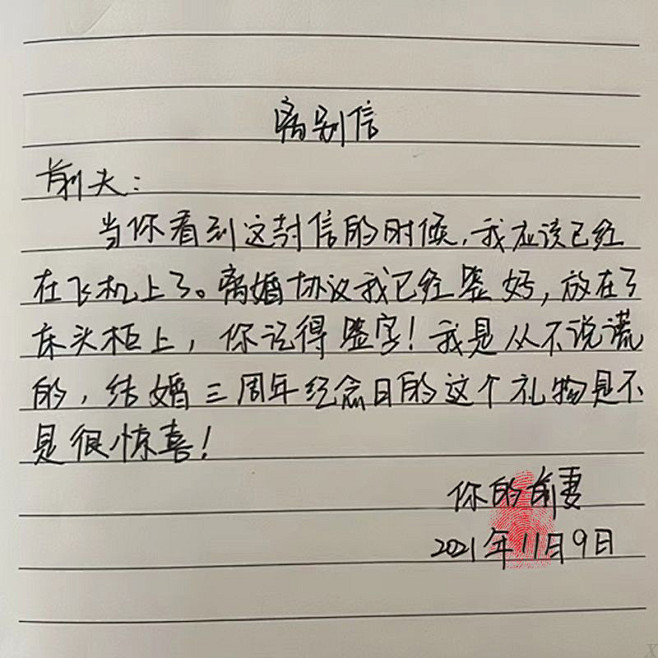 离别信
前夫：
当你看到这封信的时候，我应该已经
在飞机上了。离婚协议我已经签好，放在了
床头柜上，你记得签字！我是从不说谎
的，结婚三周年纪念日的这个礼物是不
是很惊喜！
你的前妻
2021年11月9日